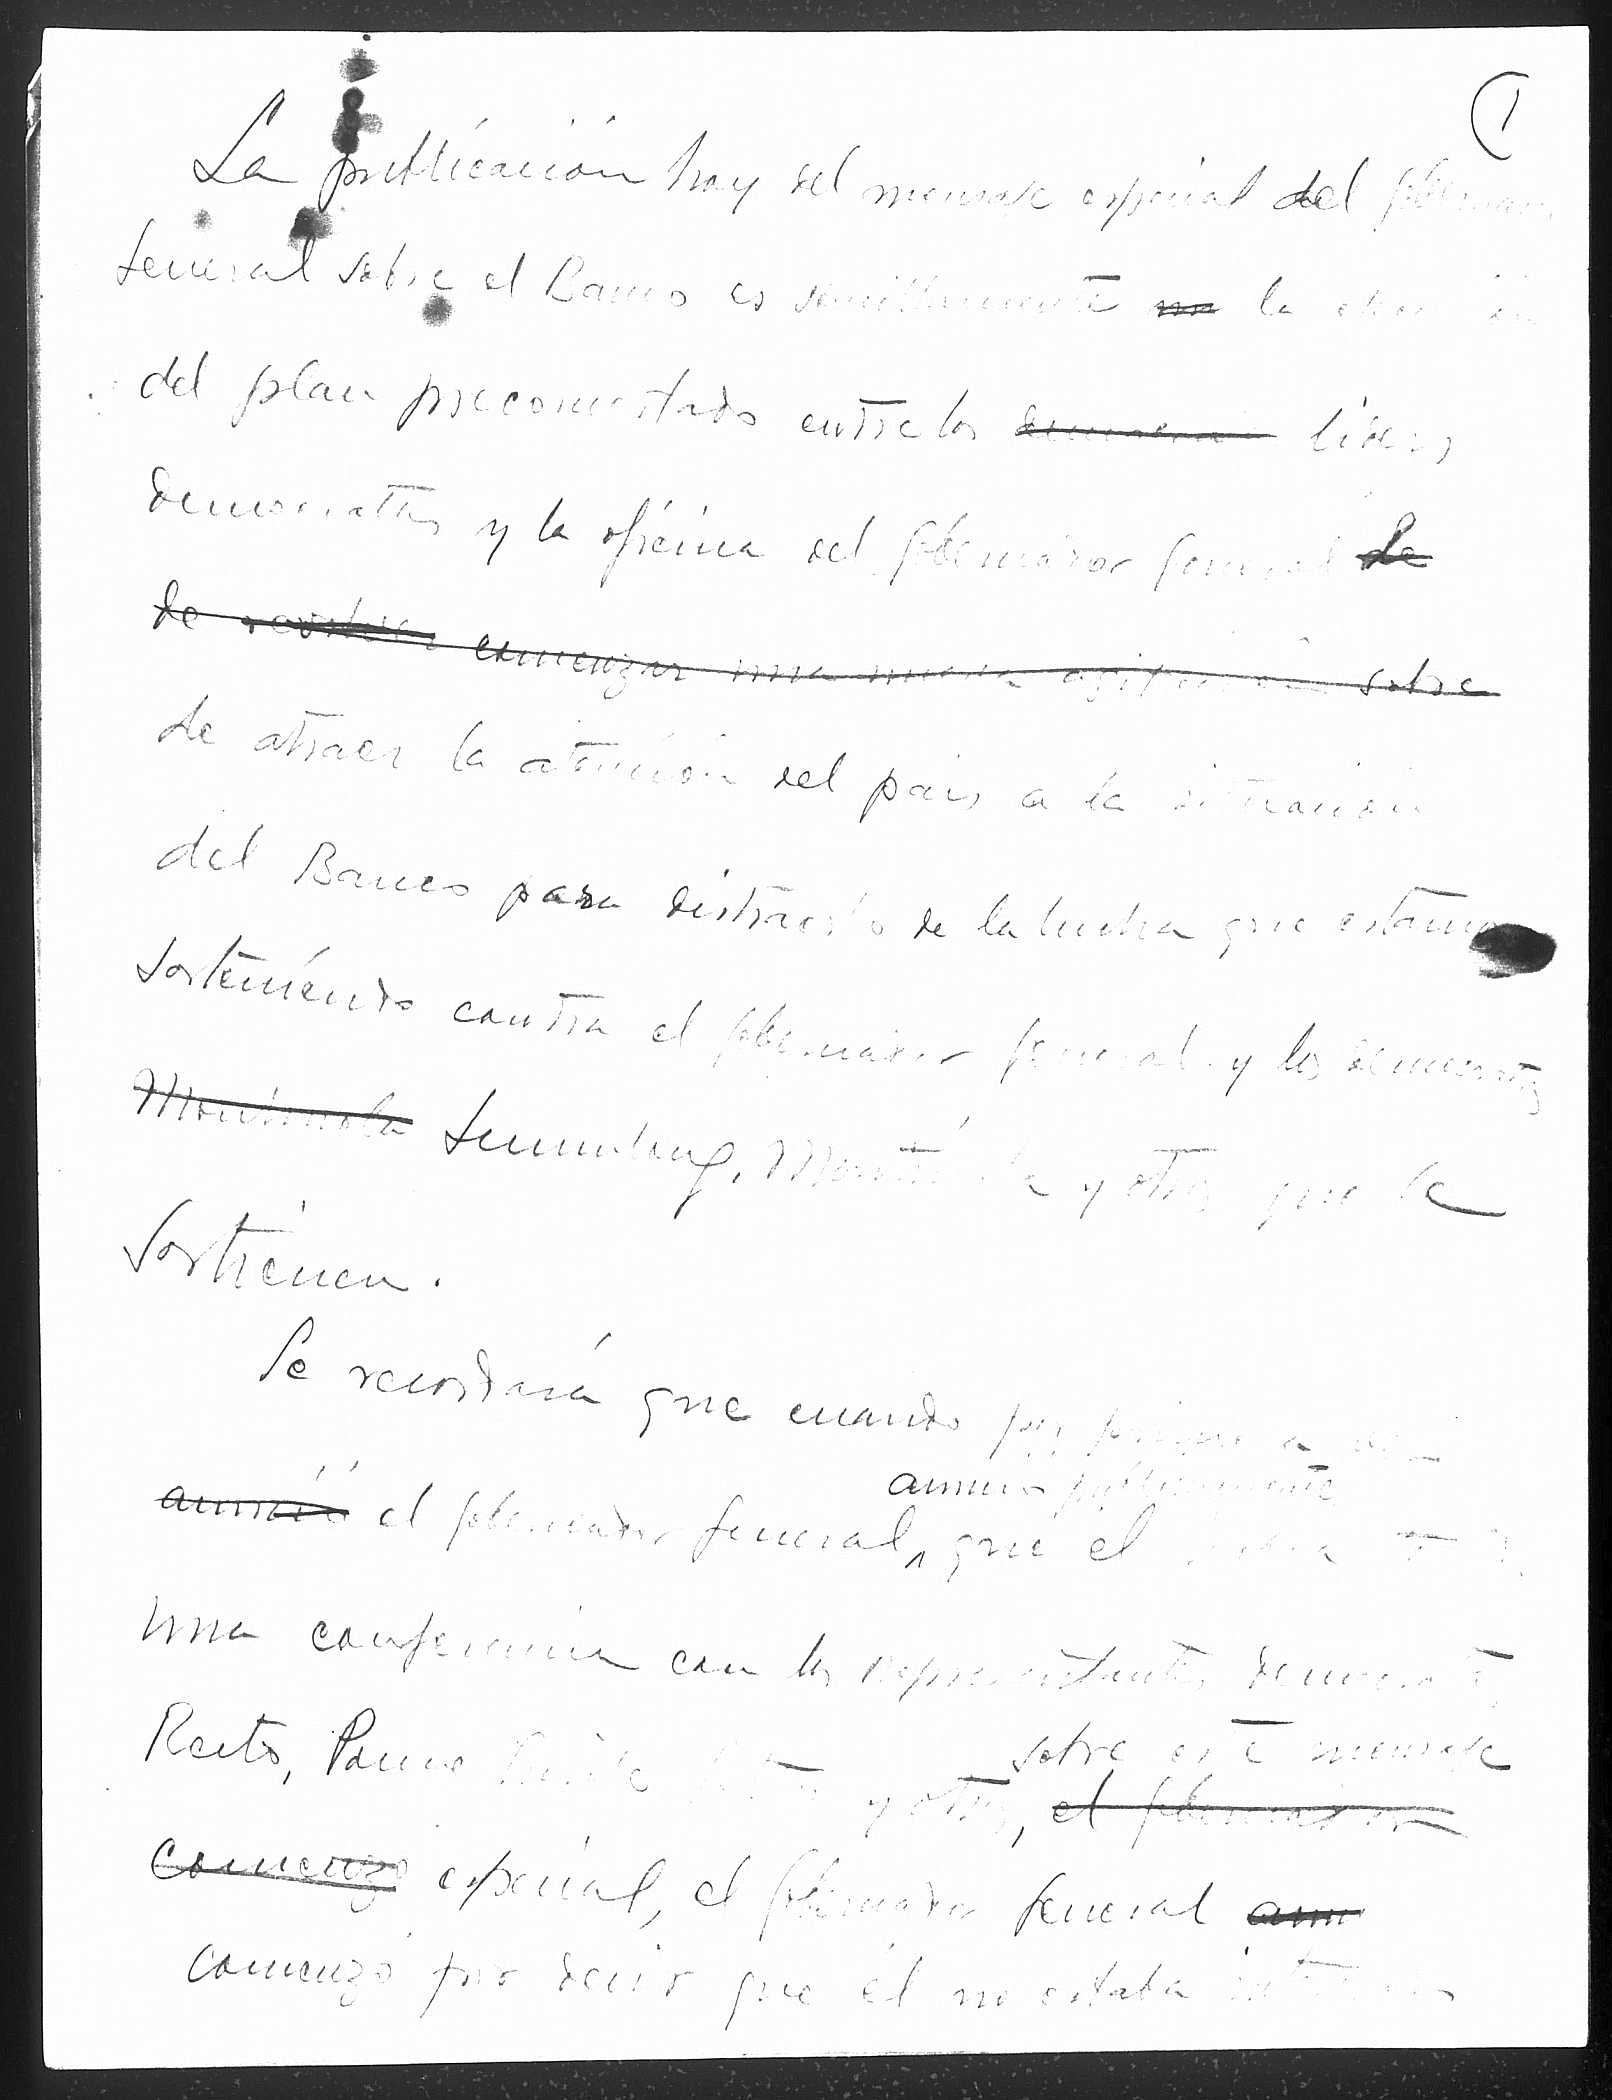 1
La publicación hoy del mensaje especial del
General sobre el Banco es sencillamente no la
del plan preconcertado entre los líderes
democratas y la oficina del gobernador general de
de comenzar una nueva sobre
de atraer la atención del pais a la situación
del Banco para distraerlo de la lucha que estamos
sosteniendo contra el gobernador general y los democratas
Montinola Sumulong, Montinola y otros que le
sostienen.
Se recordará que cuando
anunció públicamente
anunció el gobernador general, que el
una conferencia con los representantes democratas
Recto, y otros,
sobre este mensaje
el gobernador
comenzó especial, el gobernador general anu
comenzó por decir que él no estaba